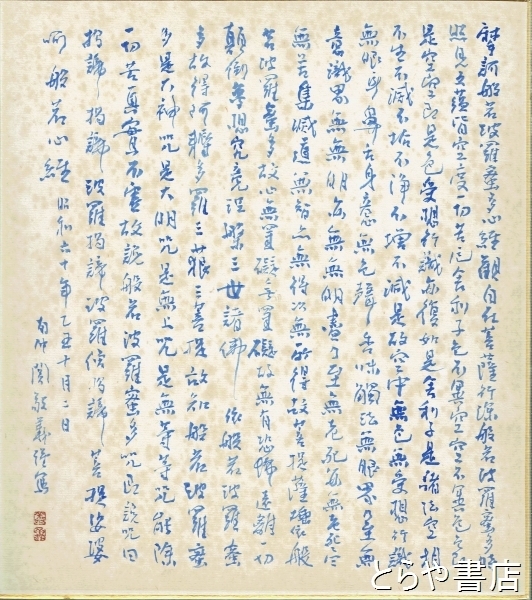 摩訶般若波羅蜜多心経観自在菩薩行深般若波羅蜜多時
照見五蘊皆空度一切苦厄舎利子色不異空空不異色色即
是空空即是色受想行識亦復如是舎利子是諸法空相
不生不滅不垢不浄不増不減是故空中無色無受想行識
無眼耳鼻舌身意無色聲香味觸法無眼界乃至無
意識界無無明亦無無明盡乃至無老死亦無老死盡
無苦集滅道無智亦無得以無所得故菩提薩埵依般
若波羅蜜多故心無罣礙無罣礙故無有恐怖遠離一切
顛倒夢想究竟涅槃三世諸佛依般若波羅蜜
多故得阿耨多羅三藐三菩提故知般若波羅蜜
多是大神咒是大明咒是無上咒是無等等咒能除
一切苦真實不虚故説般若波羅蜜多咒即説咒曰
揭諦揭諦波羅揭諦波羅僧揭諦菩提娑婆
訶般若心經 昭和六十年乙丑十月二日
とらや書店